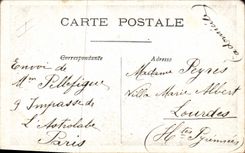 CARTE POSTALE
Correspondance
Adresse
Envoi de
Mme Pellefigue
9 Impasse de
L'Astrolabe
Paris
Madame Peyres
Villa Marie Albert
Lourdes
Htes Pyrénées